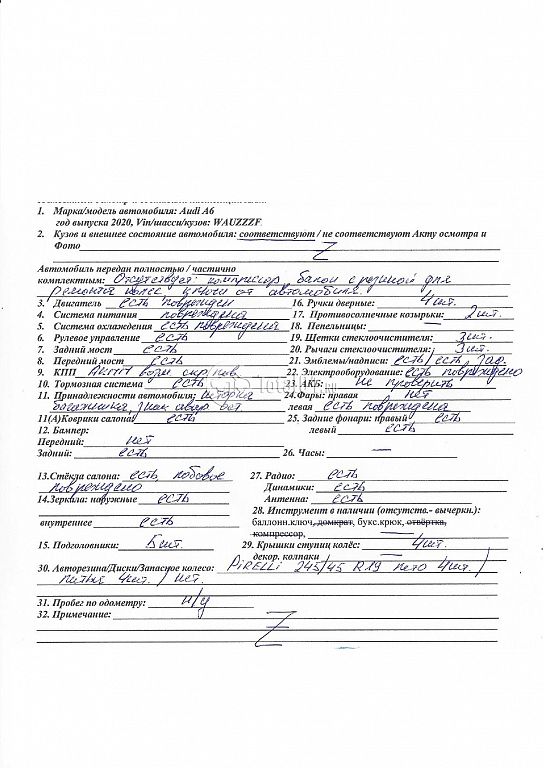 1. Марка/модель автомобиля: Audi A6
год выпуска 2020, Vin/шасси/кузов: WAUZZZF
2. Кузов и внешнее состояние автомобиля: соответствуют / не соответствуют Акту осмотра и
Фото Z
Автомобиль передан полностью / частично
комплектным: Отсутствует компрессор, балон с резиной для
ремонта колес, ключи от автомобиля.
3. Двигатель есть поврежден
4. Система питания повреждена
5. Система охлаждения есть повреждена
6. Рулевое управление есть
7. Задний мост есть
8. Передний мост есть
9. КПП АКПП возм. скр. пов.
10. Тормозная система есть
11. Принадлежности автомобиля: шторка
багажника, знак авар. ост
11(А)Коврики салона есть
12. Бампер:
Передний: нет
Задний: есть
13.Стёкла салона: есть, лобовое
повреждено
14.Зеркала: наружные есть
внутреннее есть
15. Подголовники: 5 шт.
16. Ручки дверные: 4 шт.
17. Противосолнечные козырьки: 2 шт.
18. Пепельницы: —
19. Щетки стеклоочистителя: 3 шт.
20. Рычаги стеклоочистителя: 3 шт.
21. Эмблемы/надписи: есть/есть зад.
22. Электрооборудование: есть повреждено
23. АКБ: не проверить
24.Фары: правая нет
левая есть повреждена
25. Задние фонари: правый есть
левый есть
26. Часы: —
27. Радио: есть
Динамики: есть
Антенна: есть
28. Инструмент в наличии (отсутств.- вычеркн.):
баллонн.ключ, домкрат, букс.крюк, отвёртка,
компрессор,
29. Крышки ступиц колёс: 4 шт.
декор. колпаки —
30. Авторезина/Диски/Запасное колесо: PiRELLi 245/45 R19 лето 4 шт. /
литые 4 шт. / нет.
31. Пробег по одометру: н/у
32. Примечание:
Z